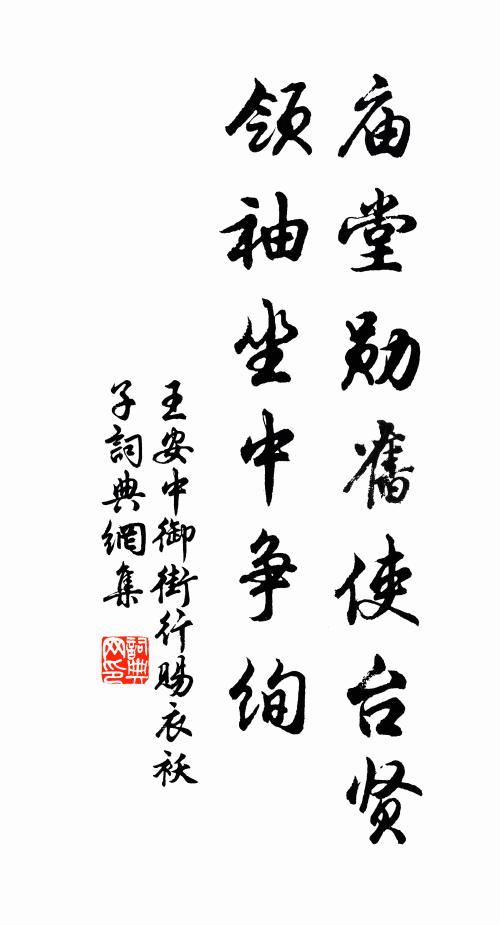 庙堂勋舊使台贤
领袖坐中争绚
王安中御街行赐衣袄
子詞典網集
詞典
网印